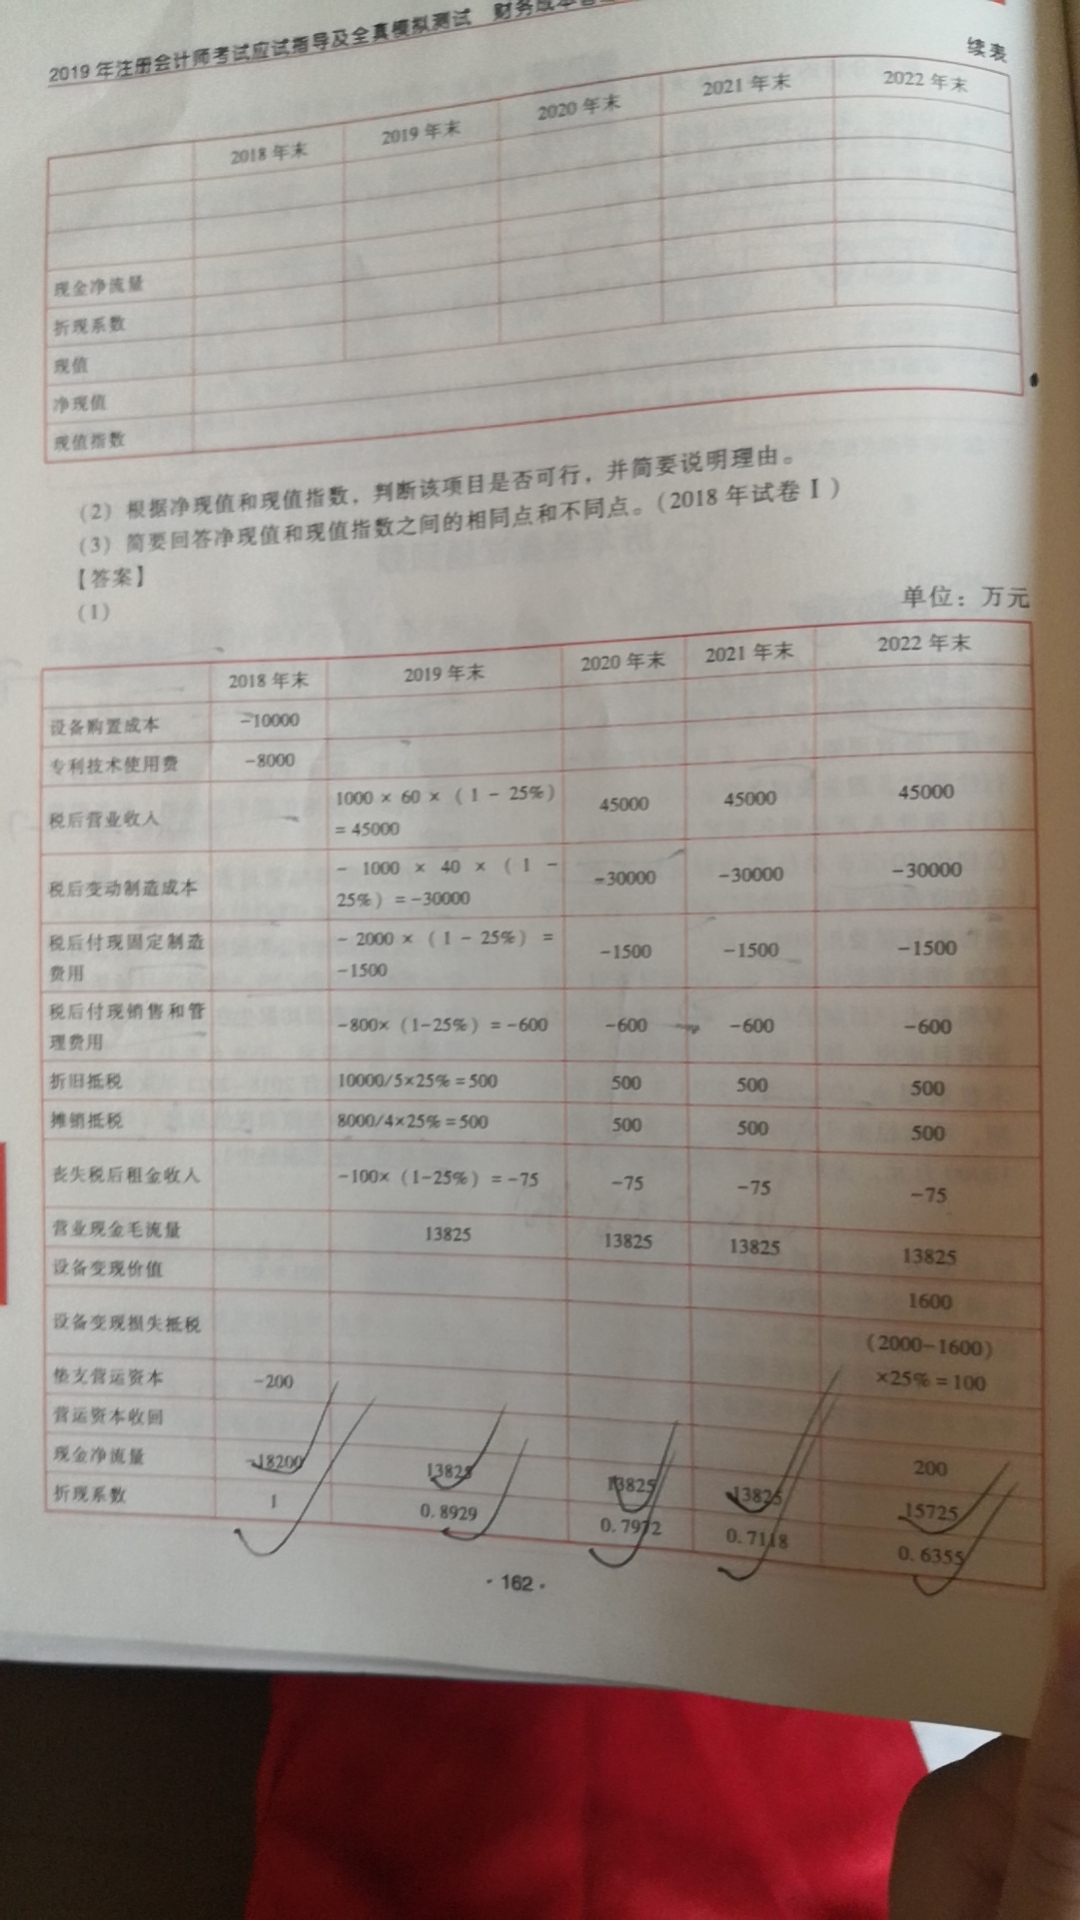 2019年注册会计师考试应试指导及全真模拟测试 财务成本管
续表
2018年末 2019年末 2020年末 2021年末 2022年末
现金净流量
折现系数
现值
净现值
现值指数
(2) 根据净现值和现值指数，判断该项目是否可行，并简要说明理由。
(3) 简要回答净现值和现值指数之间的相同点和不同点。(2018年试卷Ⅰ)
【答案】
(1)
单位：万元
2018年末 2019年末 2020年末 2021年末 2022年末
设备购置成本 -10000
专利技术使用费 -8000
税后营业收入 1000×60×(1-25%) 45000 45000 45000
=45000
税后变动制造成本 -1000×40×(1- -30000 -30000 -30000
25%)=-30000
税后付现固定制造 -2000×(1-25%)= -1500 -1500 -1500
费用 -1500
税后付现销售和管 -800×(1-25%)=-600 -600 -600 -600
理费用
折旧抵税 10000/5×25%=500 500 500 500
摊销抵税 8000/4×25%=500 500 500 500
丧失税后租金收入 -100×(1-25%)=-75 -75 -75 -75
营业现金毛流量 13825 13825 13825 13825
设备变现价值 1600
设备变现损失抵税 (2000-1600)
×25%=100
垫支营运资本 -200
营运资本收回 200
现金净流量 -18200 13825 13825 13825 15725
折现系数 1 0.8929 0.7972 0.7118 0.6355
·162·